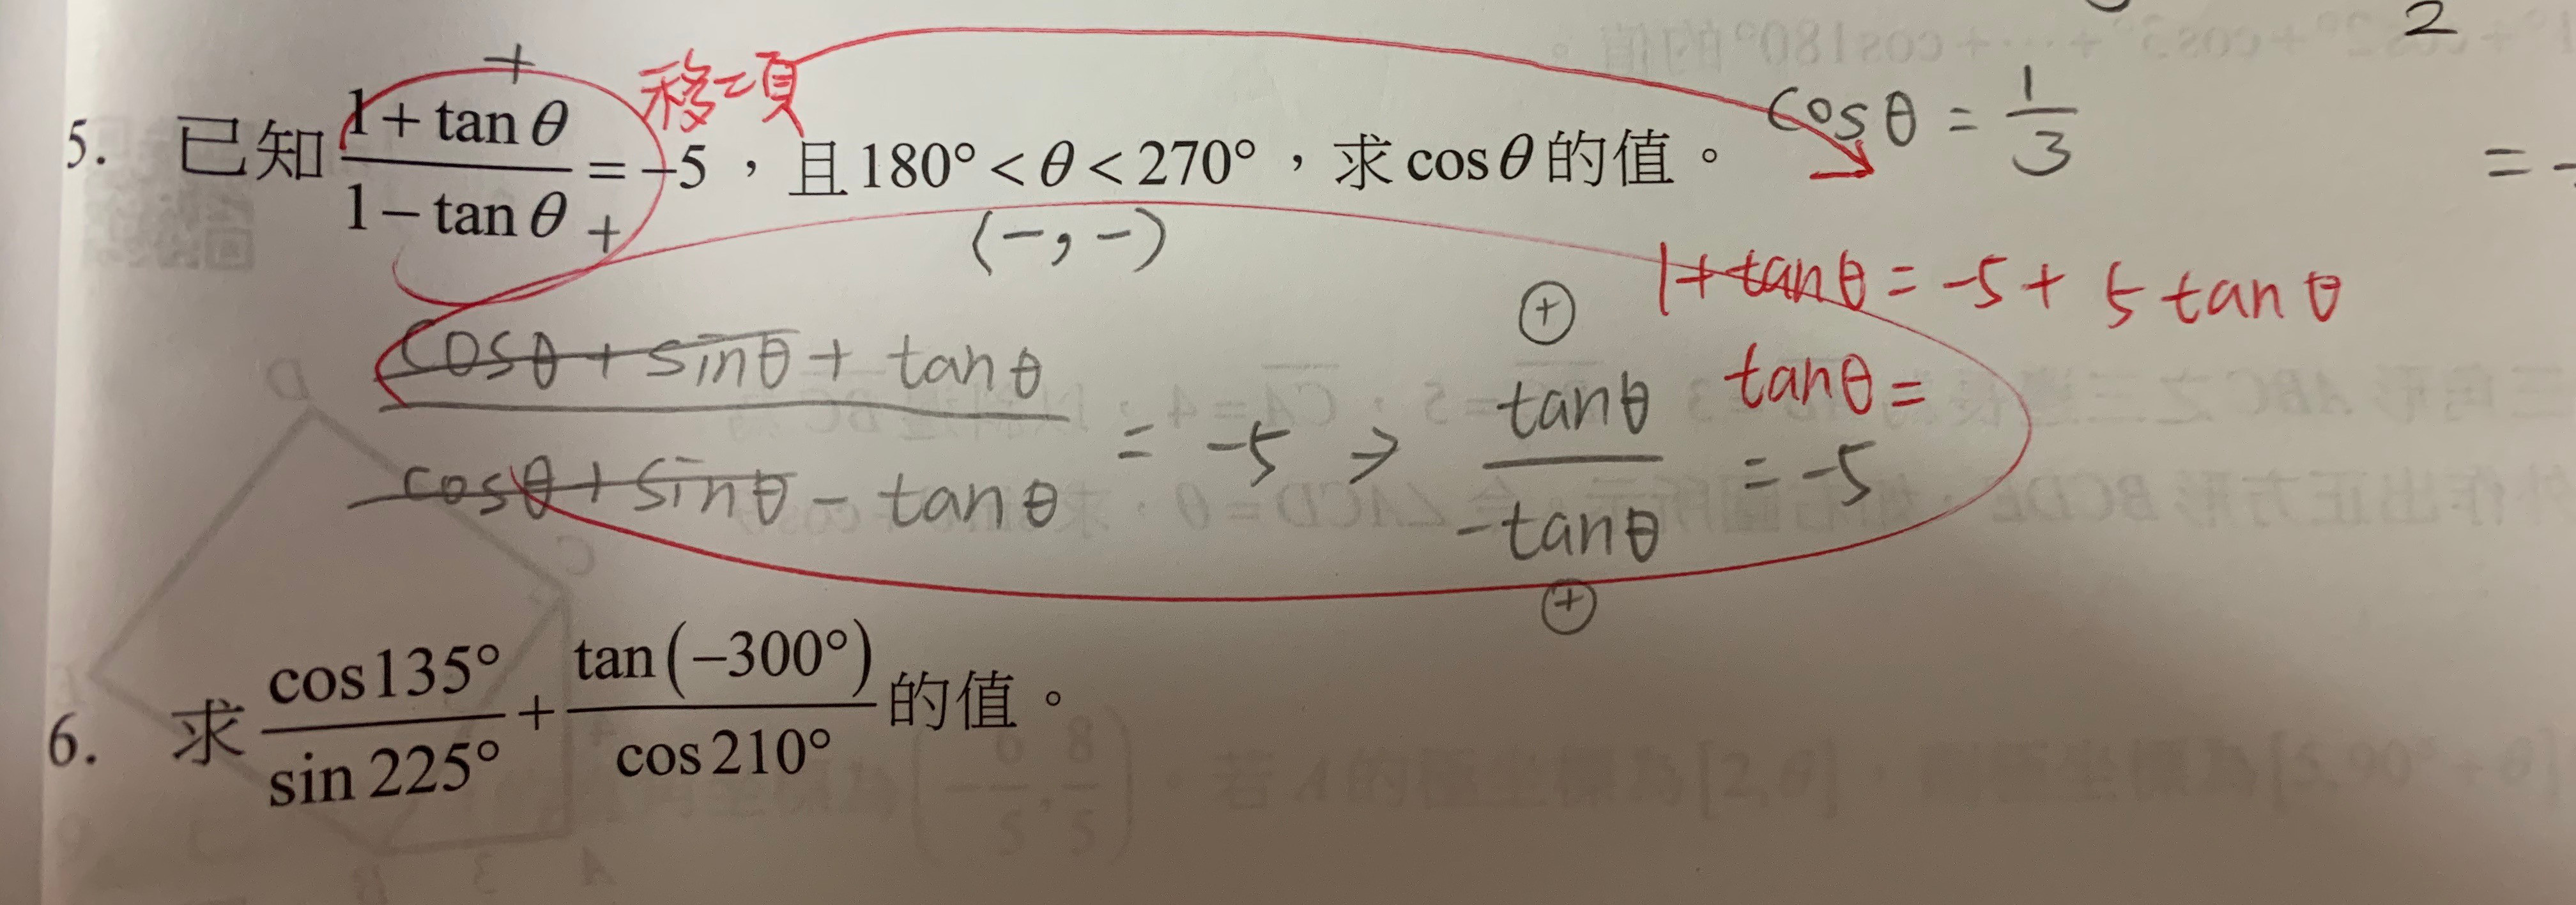 2
5. 已知 (1 + tan θ)/(1 − tan θ) = −5，且180° < θ < 270°，求cosθ的值。
+
+
移項
cosθ = 1/3
= -
(-, -)
1+tanθ = -5 + 5tanθ
(cosθ + sinθ + tanθ)/(cosθ + sinθ - tanθ) = -5 → tanθ/-tanθ = -5
+
+
tanθ =
6. 求 cos135°/sin225° + tan(−300°)/cos210° 的值。